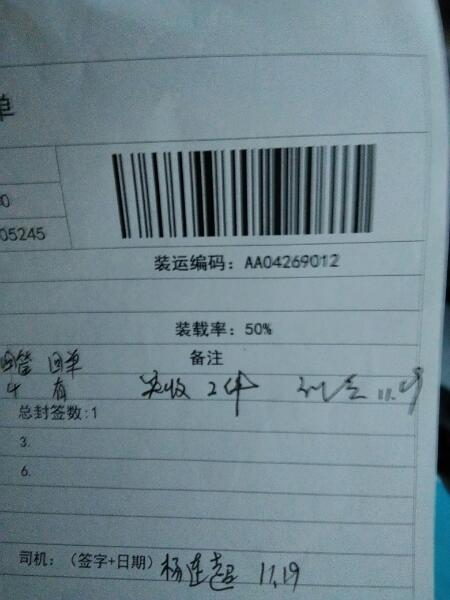 单
0
05245
装运编码: AA04269012
装载率: 50%
备注
回单
有
实收 2件
11.19
总封签数:1
3.
6.
司机: (签字+日期) 杨连超 11.19